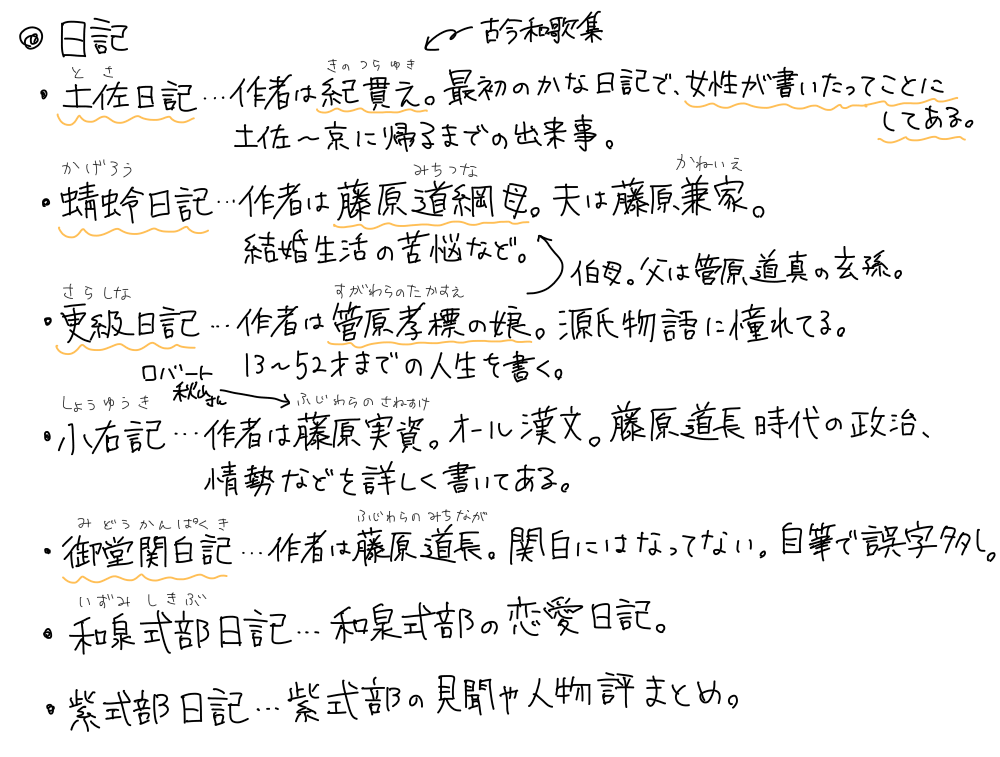 ◎ 日記
古今和歌集
とさ きのつらゆき
・土佐日記…作者は紀貫え。最初のかな日記で、女性が書いたってことに
してある。
土佐～京に帰るまでの出来事。
かげろう みちつな かねいえ
・蜻蛉日記…作者は藤原道綱母。夫は藤原兼家。
結婚生活の苦悩など。
伯母。父は菅原道真の玄孫。
さらしな すがわらのたかすえ
・更級日記…作者は菅原孝標の娘。源氏物語に憧れてる。
13～52才までの人生を書く。
ロバート
秋山さん
しょうゆうき ふじわらのさねすけ
・小右記…作者は藤原実資。オール漢文。藤原道長時代の政治、
情勢などを詳しく書いてある。
みどうかんぱくき ふじわらのみちなが
・御堂関白記…作者は藤原道長。関白にはなってない。自筆で誤字多し。
いずみしきぶ
・和泉式部日記…和泉式部の恋愛日記。
・紫式部日記…紫式部の見聞や人物評まとめ。